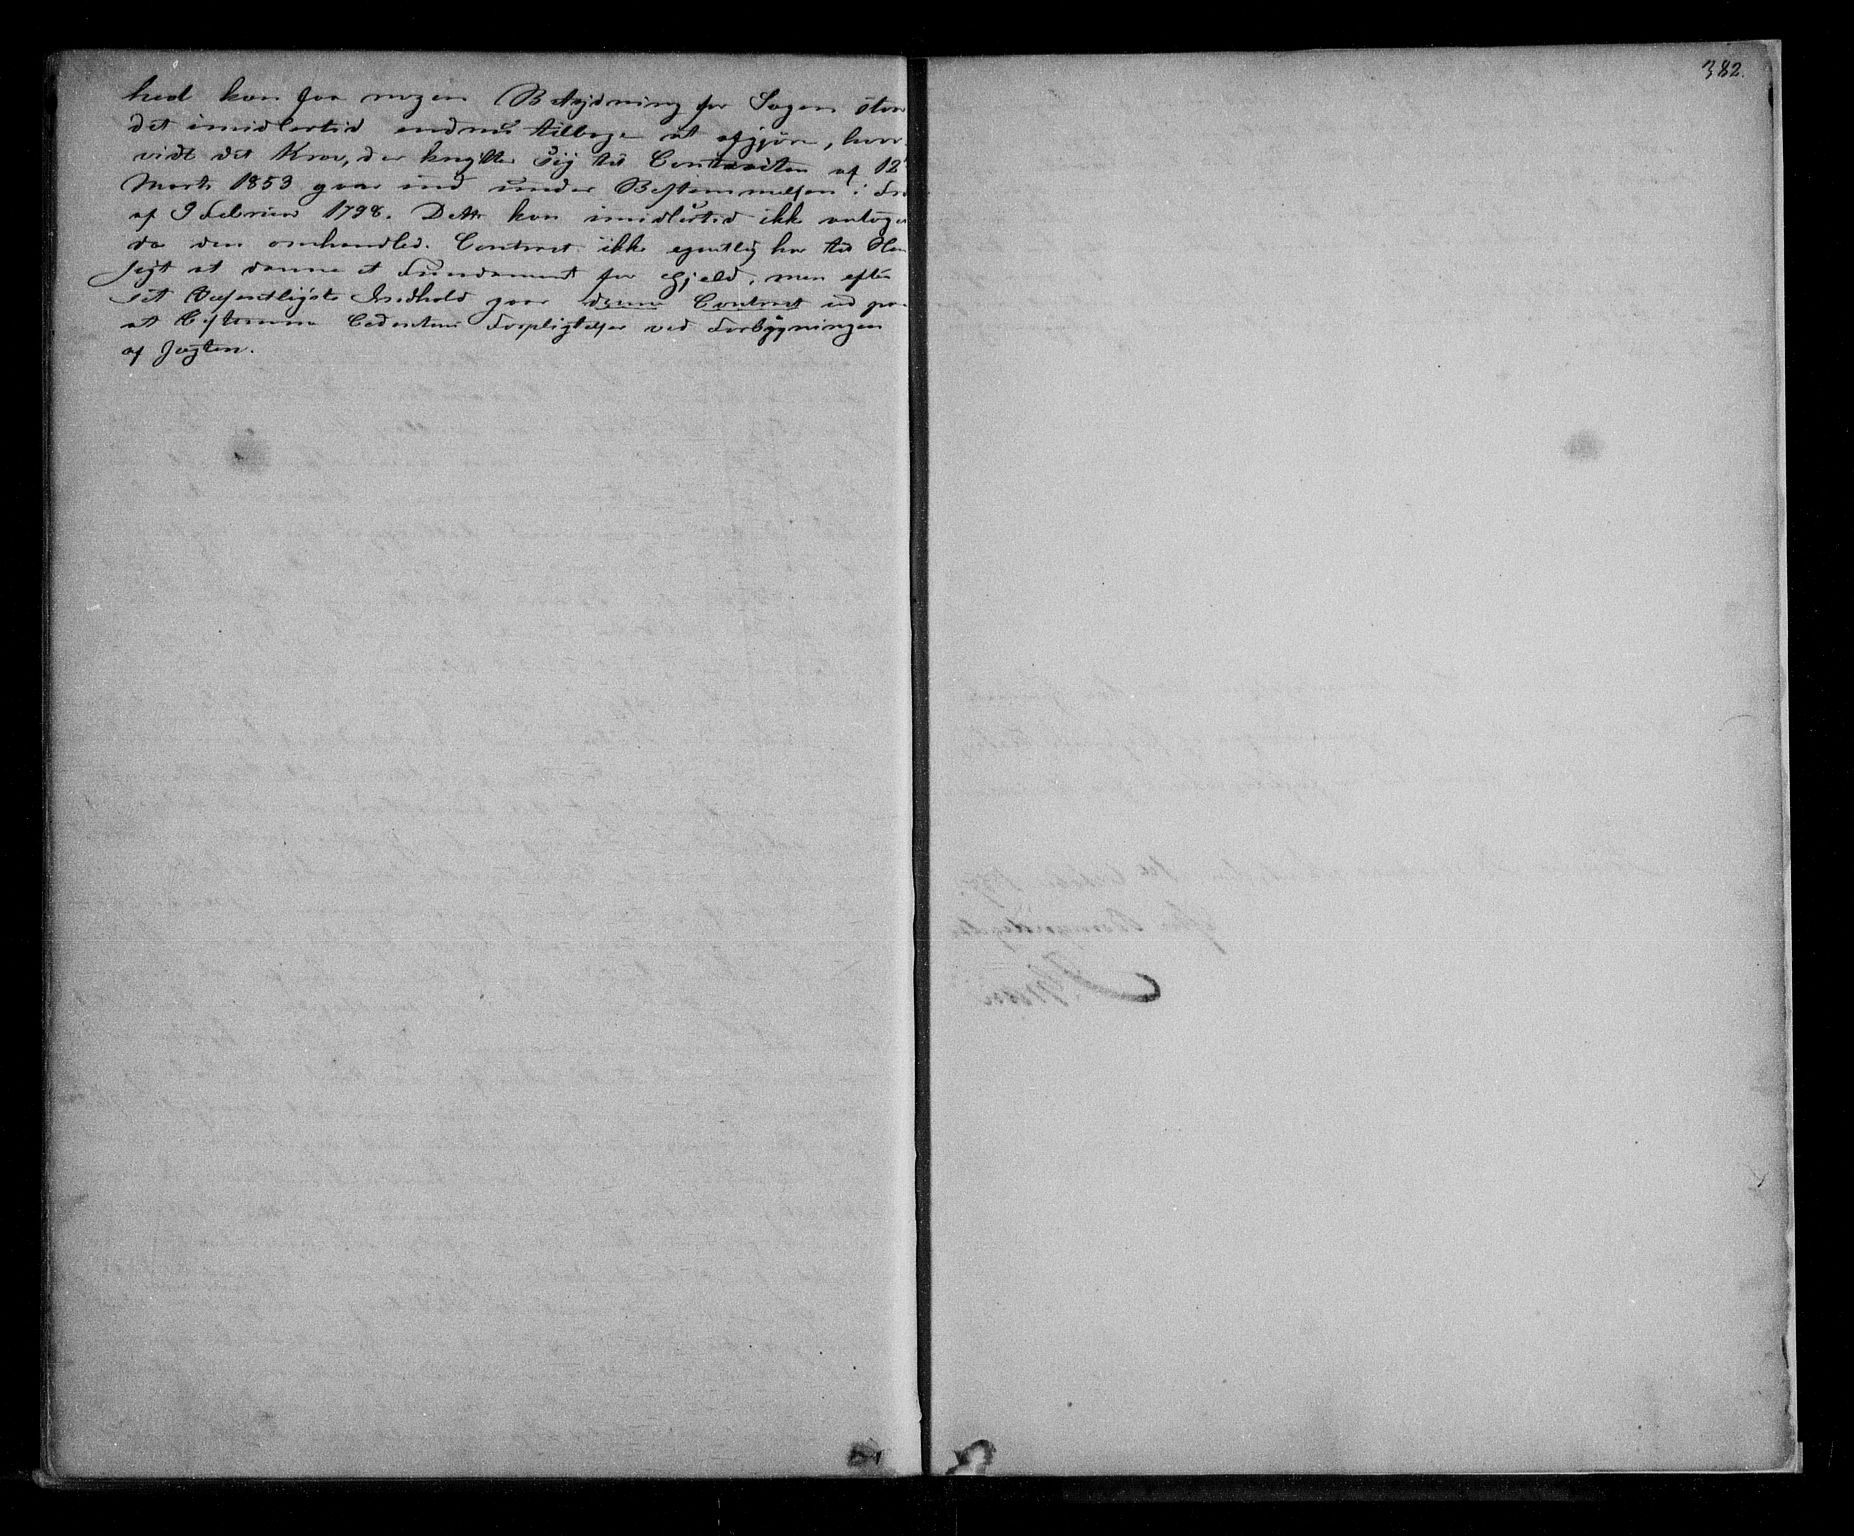 hed kan faa nogen Betydning for Sagen staar
det imidlertid endnu tilbage at afgjøre, hvor-
vidt det Krav, der knytter sig til Contracten af 12
Marts 1853 gaar ind under Bestemmelsen i Fr
af 9 Februar 1798. Dette kan imidlertid ikke antages
da den omhandled. Contract ikke egentlig har til Hen
sigt at danne et Fundament for Gjeld, men efter
sit væsentligste Indhold gaar denne Contract ud paa
at bestemme Cedentens Forpligtelser ved Forbygningen
af Jagten.
382.